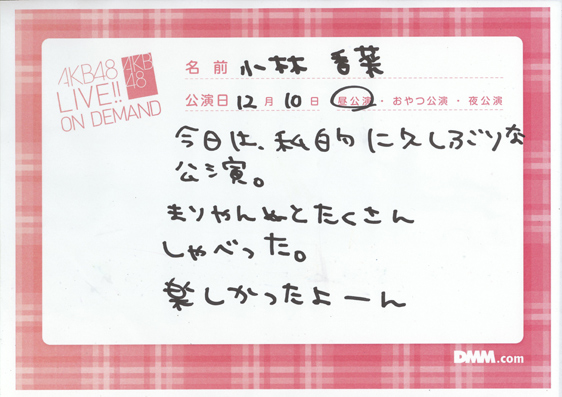 AKB48
LIVE!!
ON DEMAND
AKB
48
名前 小林 香菜
公演日 12月10日 昼公演・おやつ公演・夜公演
今日は、私的に久しぶりな
公演。
まりやんぬとたくさん
しゃべった。
楽しかったよーん
DMM.com